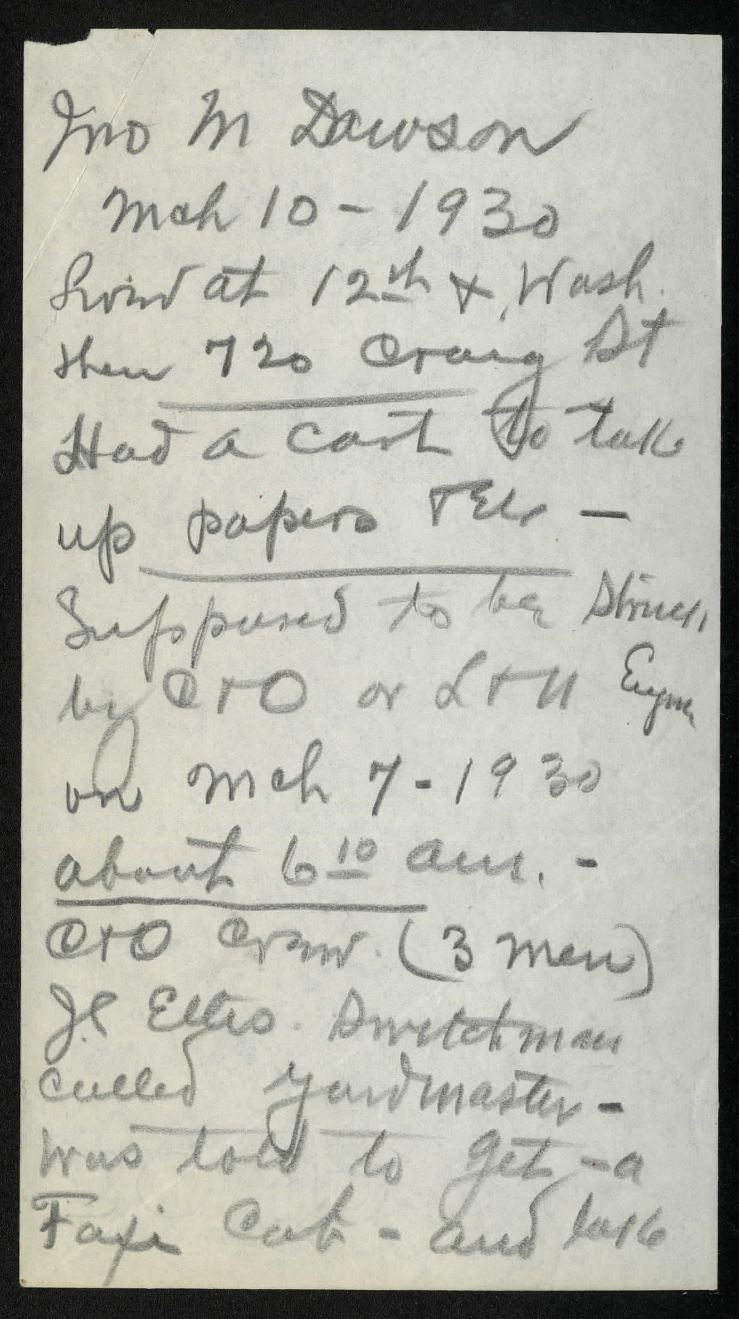 Jno M Dawson
Mch 10 - 1930
Lived at 12th & Wash.
then 720 Craig St
Had a cart to take
up papers & Etc —
Supposed to be Struck
by C&O or L&N Engine
on Mch 7 - 1930
about 6 10 am. -
C&O Crew. (3 men)
J.C. Ellis. Switchman
called yardmaster -
Was told to get - a
Taxi Cab - and take